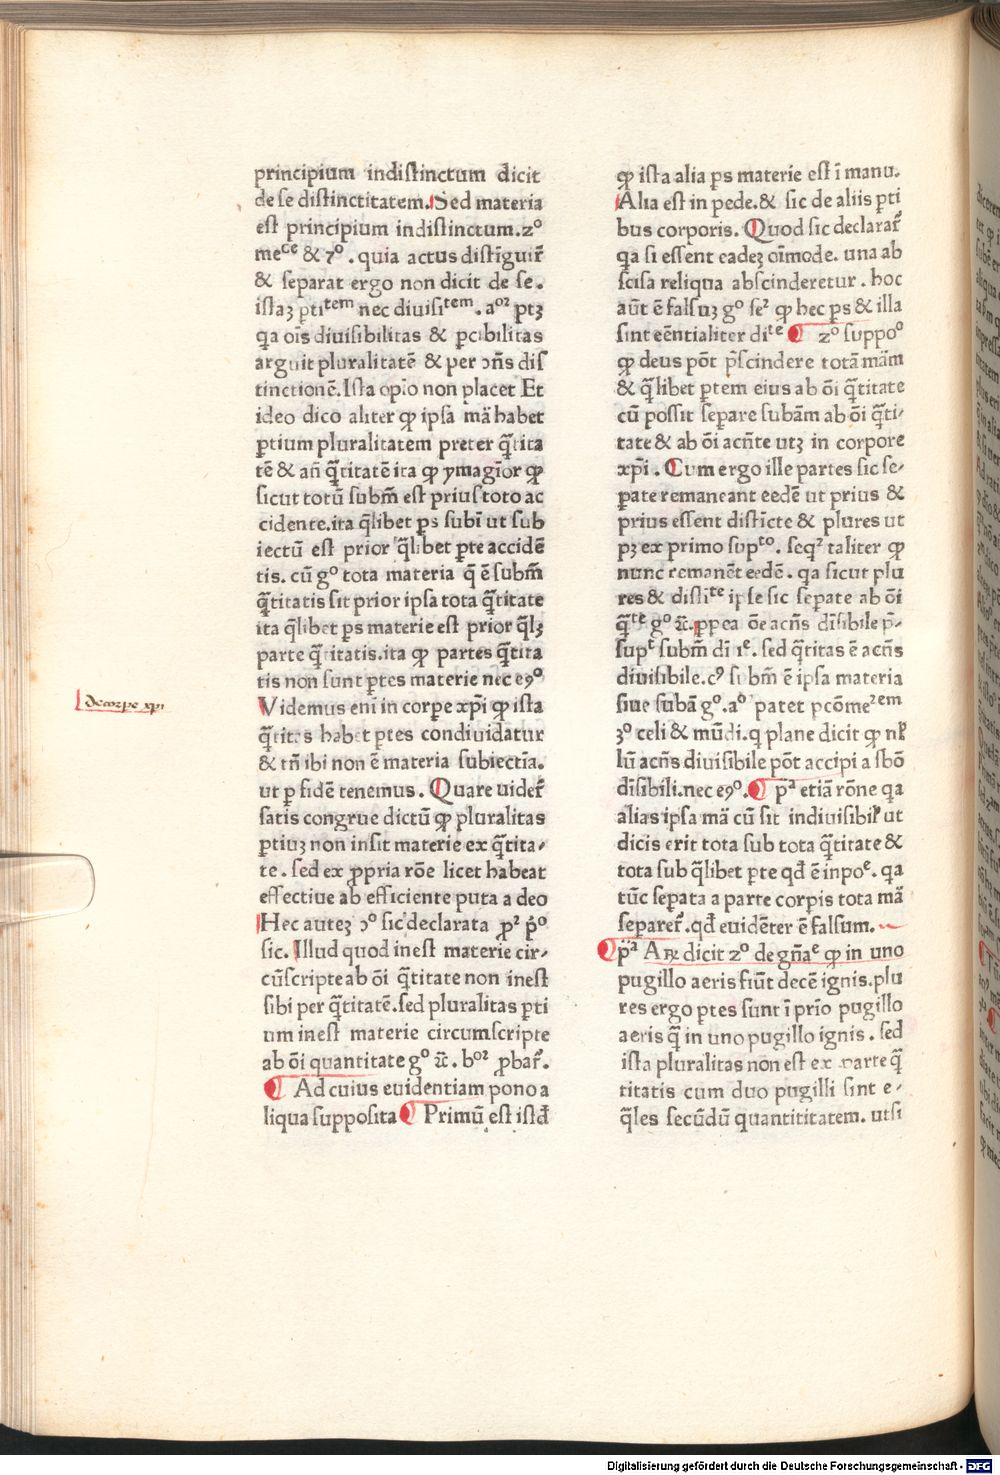 principium indistinctum dicit
de se distinctitatem. Sed materia
est principium indistinctum. 2º
meᶜᵉ & 7º. quia actus distīguit̄
& separat ergo non dicit de se.
istaꝫ ꝑtiᵗᵉᵐ nec diuisiᵗᵉᵐ. aº² ptꝫ
qa oīs diuisibilitas & ꝑcibilitas
arguit pluralitatē & per ↄn̄s dis
tinctionē. Ista opīo non placet Et
ideo dico aliter ꝙ ipsa mā habet
ꝑtium pluralitatem preter q̄tita
tē & an̄ q̄titatē ita ꝙ ymagīor ꝙ
sicut totū subm̄ est prius toto ac
cidente. ita q̄libet ps subī ut sub
iectū est prior q̄libet ꝑte accidē
tis. cū gº tota materia q̄ ē subm̄
q̄titatis sit prior ipsa tota q̄titate
ita q̄libet ps materie est prior q̄lꝫ
parte q̄titatis. ita ꝙ partes q̄tita
tis non sunt ꝑtes materie nec eꝯº
Videmus enī in corꝑe xp̄i ꝙ ista
q̄titas habet ꝑtes condiuidatur
& tn̄ ibi non ē materia subiectīa.
ut ꝑ fidē tenemus. Quare uidet̄
satis congrue dictū ꝙ pluralitas
ꝑtiuꝫ non insit materie ex q̄tita-
te. sed ex ꝓpria rōe licet habeat
effectiue ab efficiente puta a deo
Hec auteꝫ ↄº sic declarata ꝓ² ṗº
sic. Illud quod inest materie cir-
cūscripte ab ōi q̄titate non inest
sibi per q̄titatē. sed pluralitas ꝑti
um inest materie circumscripte
ab ōi quantitate gº &c̄. bº² ꝓbat̄.
¶ Ad cuius euidentiam pono a
liqua supposita ¶ Primū est istd̄
de corꝑe xp̄i
ꝙ ista alia ps materie est ī manu.
Alia est in pede. & sic de aliis ꝑti
bus corporis. Quod sic declarat̄
qa si essent eadeꝫ oīmode. una ab
scisa reliqua abscinderetur. hoc
aūt ē falsuꝫ gº se² ꝙ hec ps & illa
sint eēntialiter diᵗᵉ ¶ 2º suppoº
ꝙ deus pōt p̄scindere totā mām
& q̄libet ꝑtem eius ab ōi q̄titate
cū possit seꝑare subām ab ōi q̄ti-
tate & ab ōi acn̄te utꝫ in corpore
xp̄i. Cum ergo ille partes sic se-
ꝑate remaneant eedē ut prius &
prius essent distīcte & plures ut
pꝫ ex primo supᵗº. seq² taliter ꝙ
nunc remanēt eedē. qa sicut plu
res & distiᵗᵉ ipse sic seꝑate ab ōi
q̄ᵗᵉ gº &c̄. ꝓpea ōe acn̄s dīsibile p̄-
supᵗ subm̄ dī 1ᵉ. sed q̄titas ē acn̄s
diuisibile. cꝰ subm̄ ē ipsa materia
siue subā gº. aº patet ꝑcōme²ᵉᵐ
3º celi & mūdi. q plane dicit ꝙ nł
lū acn̄s diuisibile pōt accipi a sbō
dīsibili. nec eꝯº. ¶ p² etiā rōne qa
alias ipsa mā cū sit indiuisibił ut
dicis erit tota sub tota q̄titate &
tota sub q̄libet ꝑte qd̄ ē inpoᵉ. qa
tūc seꝑata a parte corꝑis tota mā
separet̄. qd̄ euidēter ē falsum.
¶ p̄² Arꝫ dicit 2º de gn̄aᵉ ꝙ in uno
pugillo aeris fiūt decē ignis. plu
res ergo ꝑtes sunt ī prīo pugillo
aeris q̄ in uno pugillo ignis. sed
ista pluralitas non est ex parte q̄
titatis cum duo pugilli sint e-
q̄les secūdū quantititatem. ut si
Digitalisierung gefördert durch die Deutsche Forschungsgemeinschaft - DFG